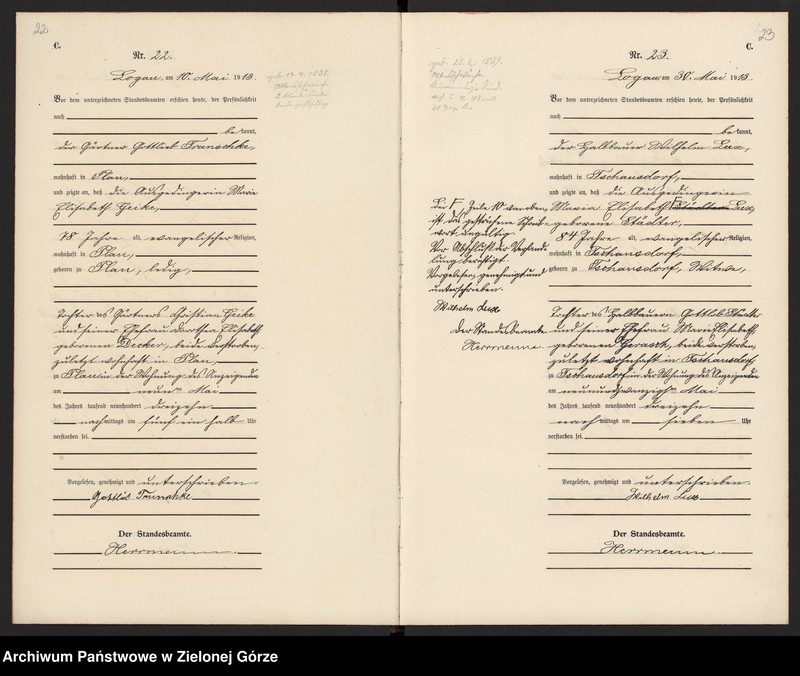 22
C.
Nr. 22.
Logau, am 10. Mai 1913.
Vor dem unterzeichneten Standesbeamten erschien heute, der Persönlichkeit
nach
be kannt,
der Gärtner Gottlieb
wohnhaft in Plau,
und zeigte an, daß die Ausgedingerin Maria
Elisabeth Heike,
78 Jahre alt, evangelischer Religion,
wohnhaft in Plau,
geboren zu Plau, ledig,
Tochter des Gärtners Christian Heike
und seiner Ehefrau Dorothea Elisabeth
geborenen Decker, beide verstorben,
zuletzt wohnhaft in Plau,
zu Plau in der Wohnung des Anzeigenden
am neunten Mai
des Jahres tausend neunhundert dreizehn
nach mittags um fünf ein halb Uhr
verstorben sei.
Vorgelesen, genehmigt und unterschrieben.
Gottlieb
Der Standesbeamte.
Herrmann
23
C.
Nr. 23.
Logau, am 30. Mai 1913.
Vor dem unterzeichneten Standesbeamten erschien heute, der Persönlichkeit
nach
be kannt,
der Halbbauer Wilhelm Lux,
wohnhaft in Tschausdorf,
und zeigte an, daß die Ausgedingerin
Maria Elisabeth Städter Lux,
geborene Städter,
84 Jahre alt, evangelischer Religion,
wohnhaft in Tschausdorf,
geboren zu Tschausdorf, Witwe,
Tochter des Halbbauern Gottlob Städter
und seiner Ehefrau, Maria Elisabeth
geborenen beide verstorben,
zuletzt wohnhaft in Tschausdorf,
zu Tschausdorf in der Wohnung des Anzeigenden
am neunundzwanzigsten Mai
des Jahres tausend neunhundert dreizehn
nach mittags um sieben Uhr
verstorben sei.
Vorgelesen, genehmigt und unterschrieben.
Wilhelm Lux
Der Standesbeamte.
Herrmann
Bei Zeile 10 von oben,
ist das gestrichene Schreib-
wort ungültig.
Vor Abschluß der Verhand-
lung berichtigt.
Vorgelesen, genehmigt und
unterschrieben.
Wilhelm Lux
Der Standesbeamte
Herrmann.
Archiwum Państwowe w Zielonej Górze